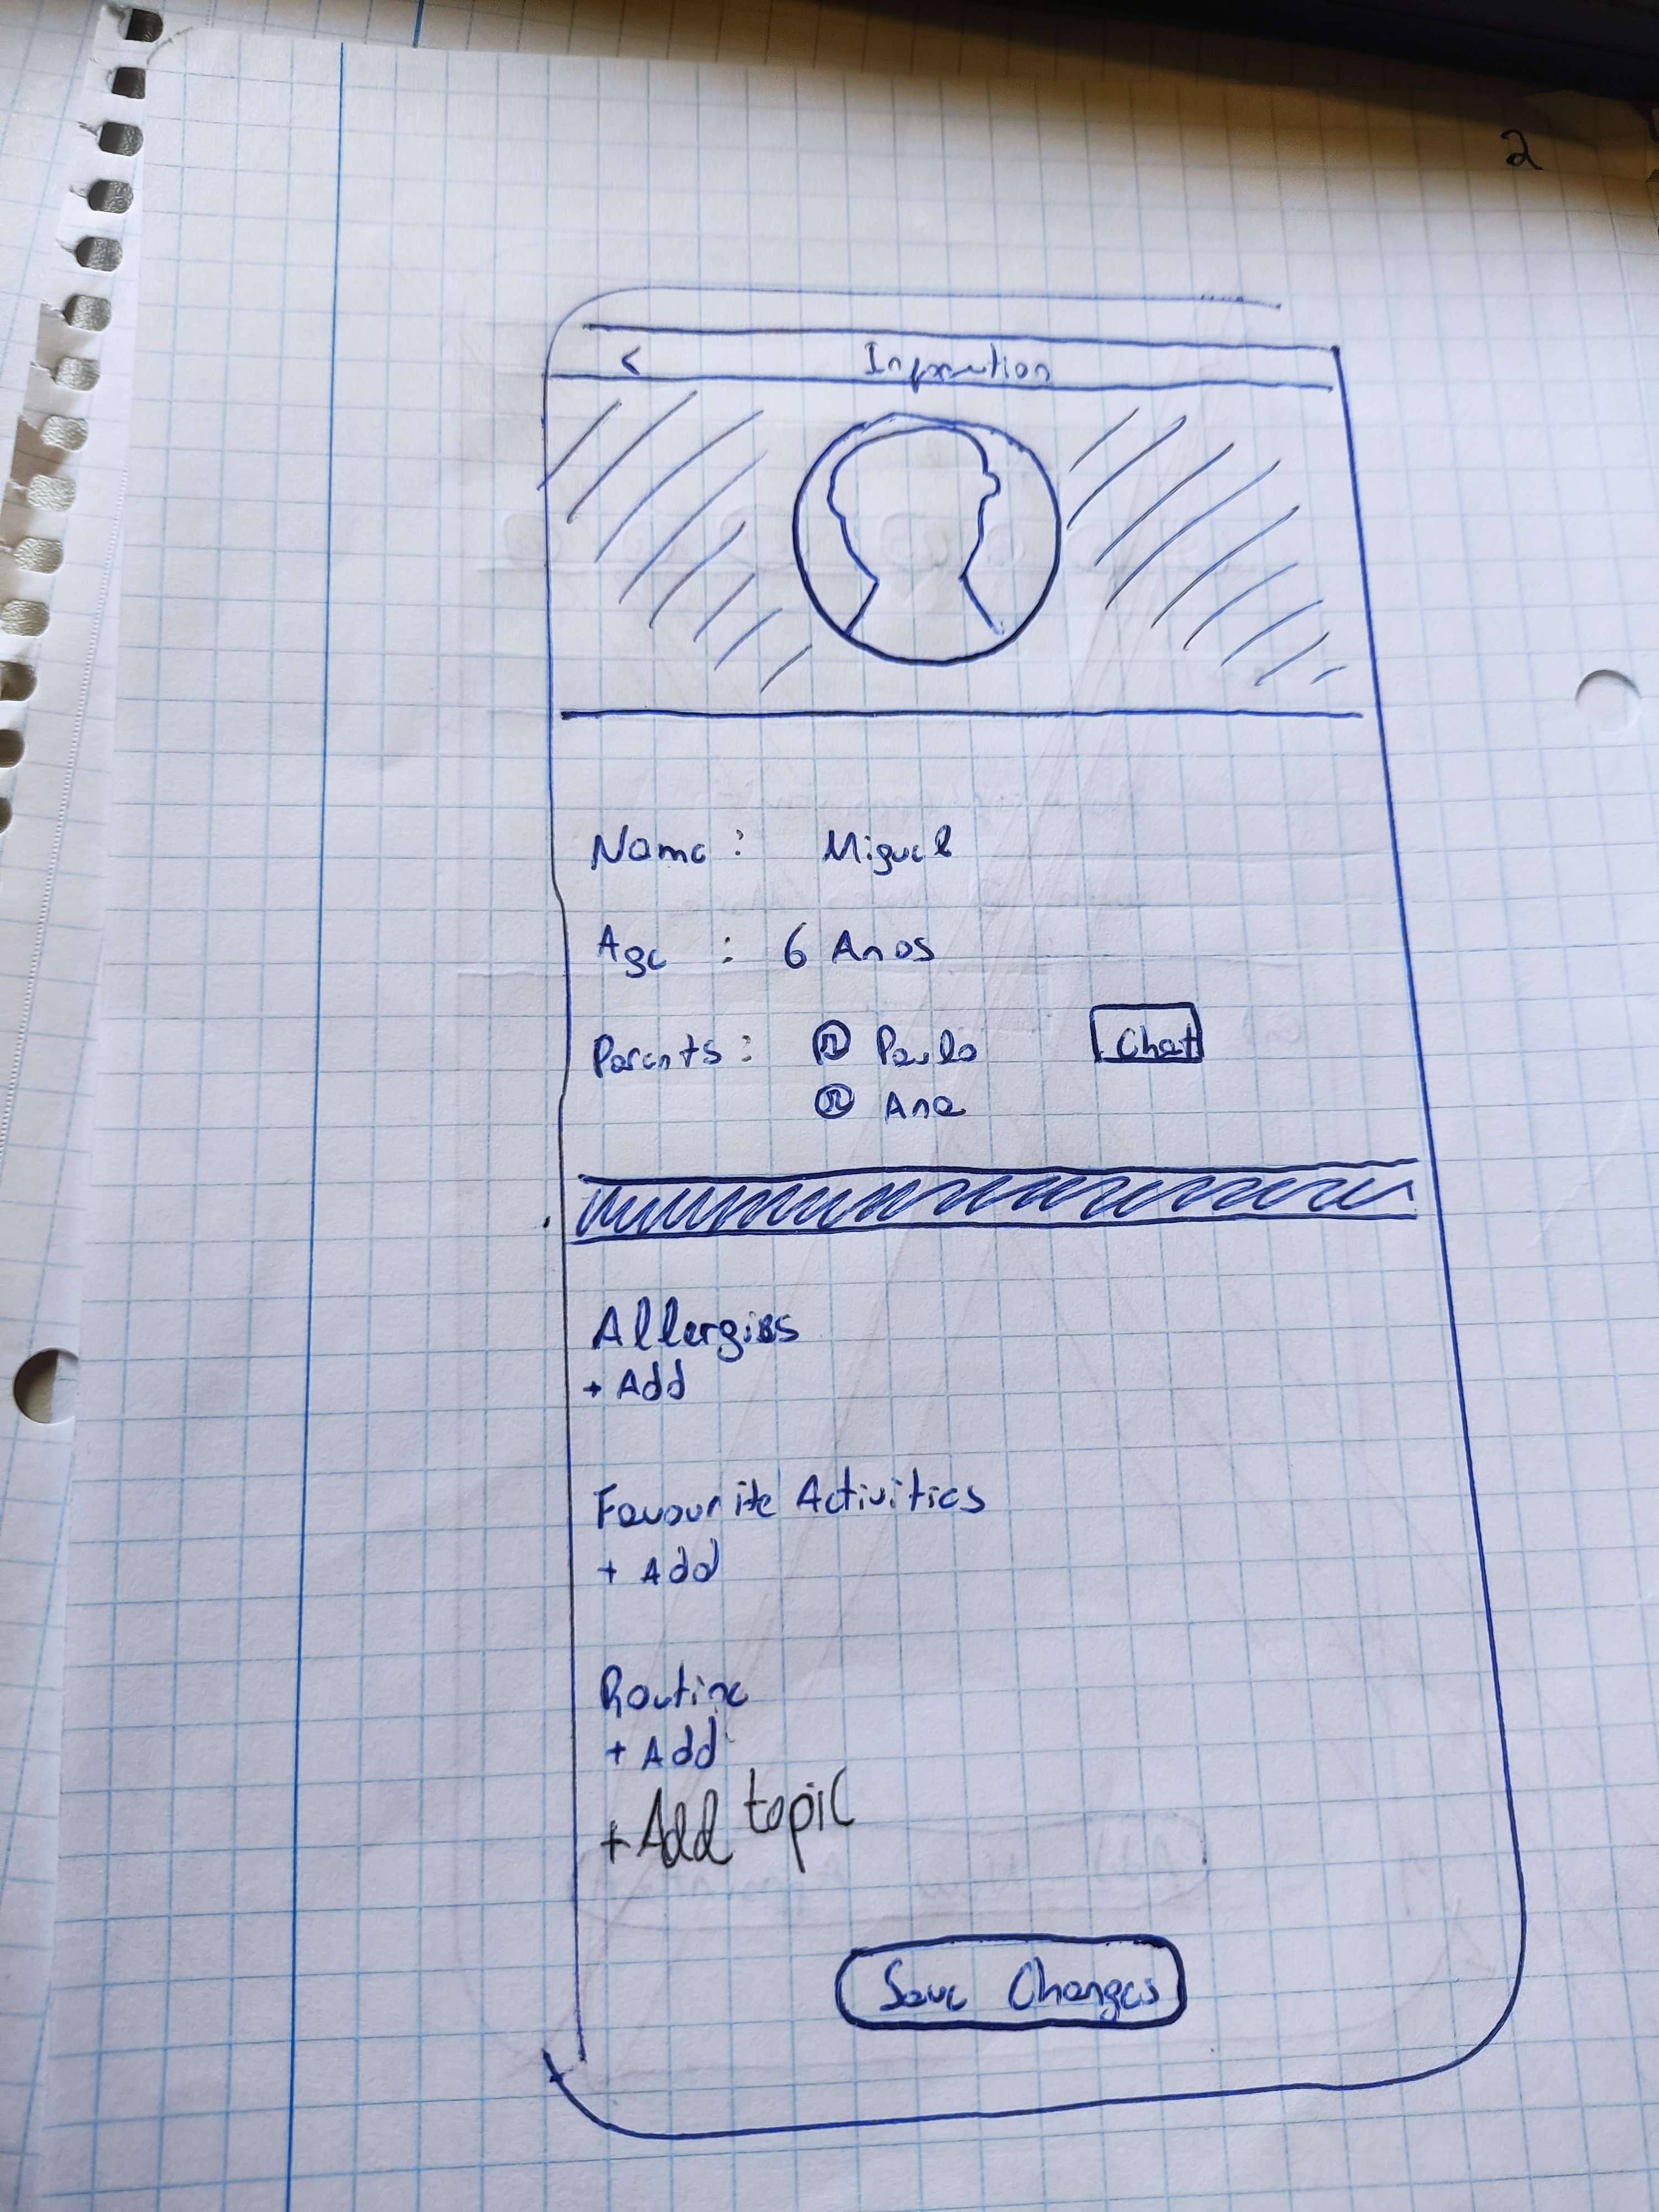 2
< Information
Name : Miguel
Age : 6 Anos
Parents : Paulo Chat
Ana
Allergies
+ Add
Favourite Activities
+ Add
Routine
+ Add
+ Add topic
Save Changes